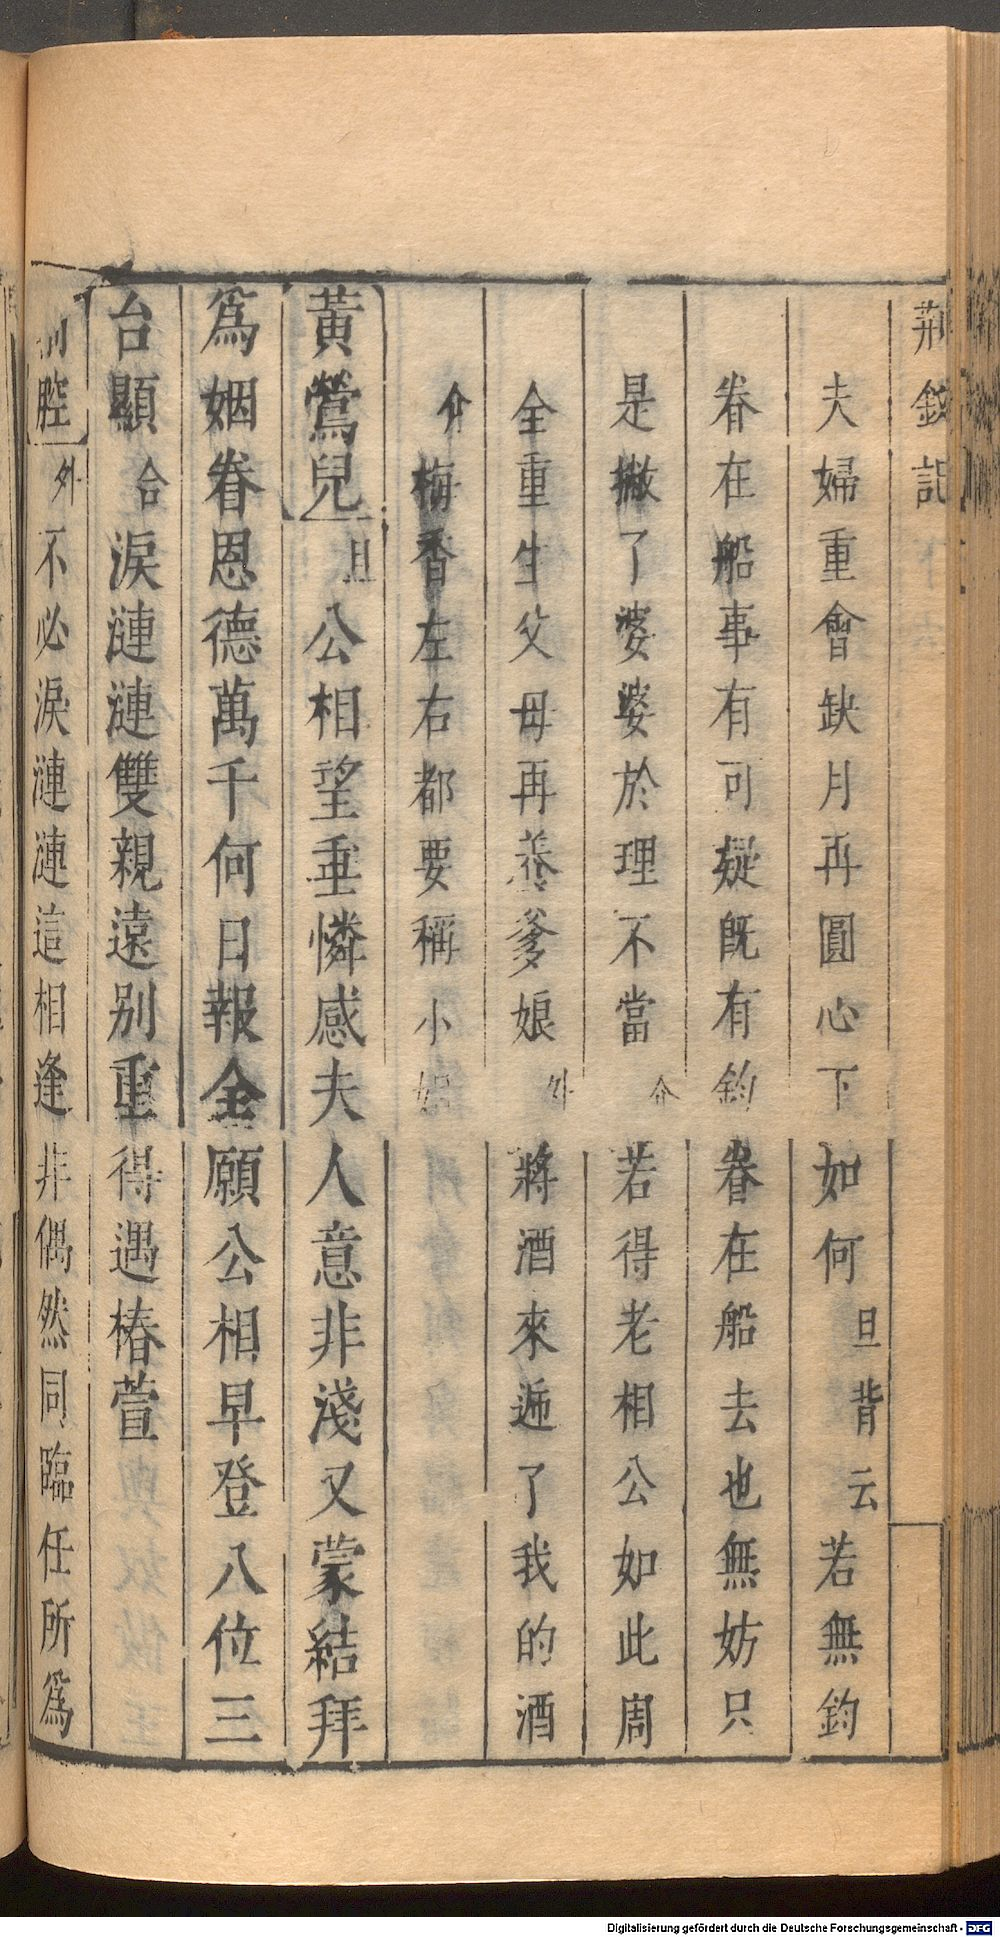 荊釵記
夫婦重會缺月再圓心下如何旦背云若無鈞
眷在船事有可疑既有鈞眷在船去也無妨只
是撇了婆婆於理不當介若得老相公如此周
全重生父母再養爹娘外將酒來遞了我的酒
介梅香左右都要稱小姐
黃鶯兒旦公相望垂憐感夫人意非淺又蒙結拜
爲姻眷恩德萬千何日報全願公相早登八位三
台顯合淚漣漣雙親遠別重得遇椿萱
腔外不必淚漣漣這相逢非偶然同臨任所爲
Digitalisierung gefördert durch die Deutsche Forschungsgemeinschaft - DFG